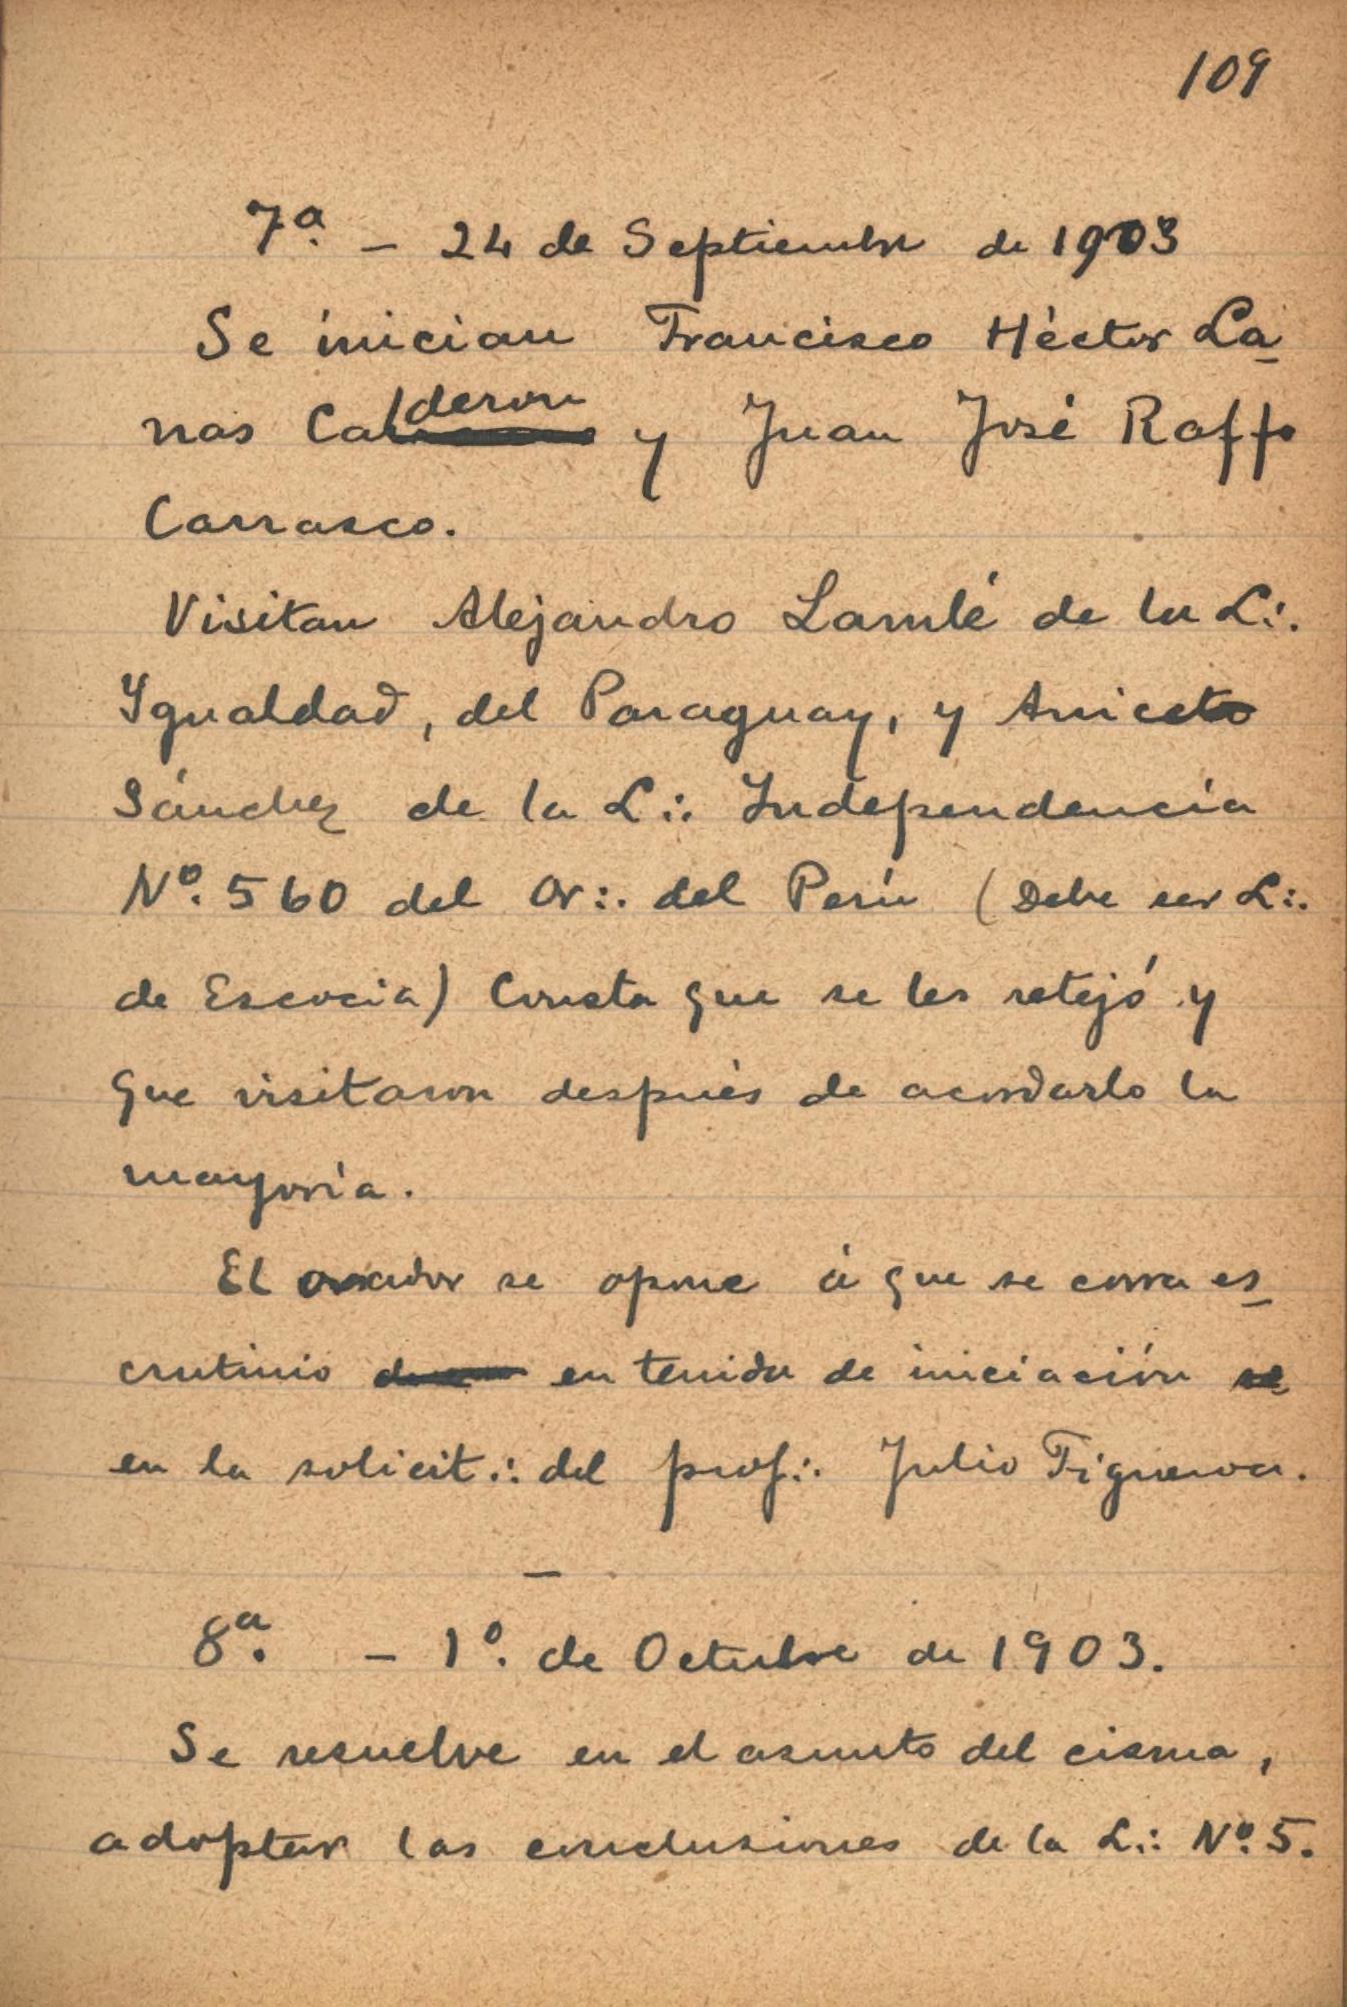 109
7ª. - 24 de Septiembre de 1903
Se inician Francisco Héctor La-
nas Calderon y Juan José Raffo
Carrasco.
Visitan Alejandro de la L∴
Ygualdad, del Paraguay, y Aniceto
Sánchez de la L∴ Independencia
Nº. 560 del Or∴ del Perú (Debe ser L∴
de Escocia) Consta que se les retejó y
que visitaron después de acordarlo la
mayoría.
El orador se opone á que se corra es-
crutinio en tenida de iniciación
en la solicit∴ del prof∴ Julio Figueroa.
—
8ª. - 1º. de Octubre de 1903.
Se resuelve en el asunto del cisma,
adoptar las conclusiones de la L∴ Nº. 5.